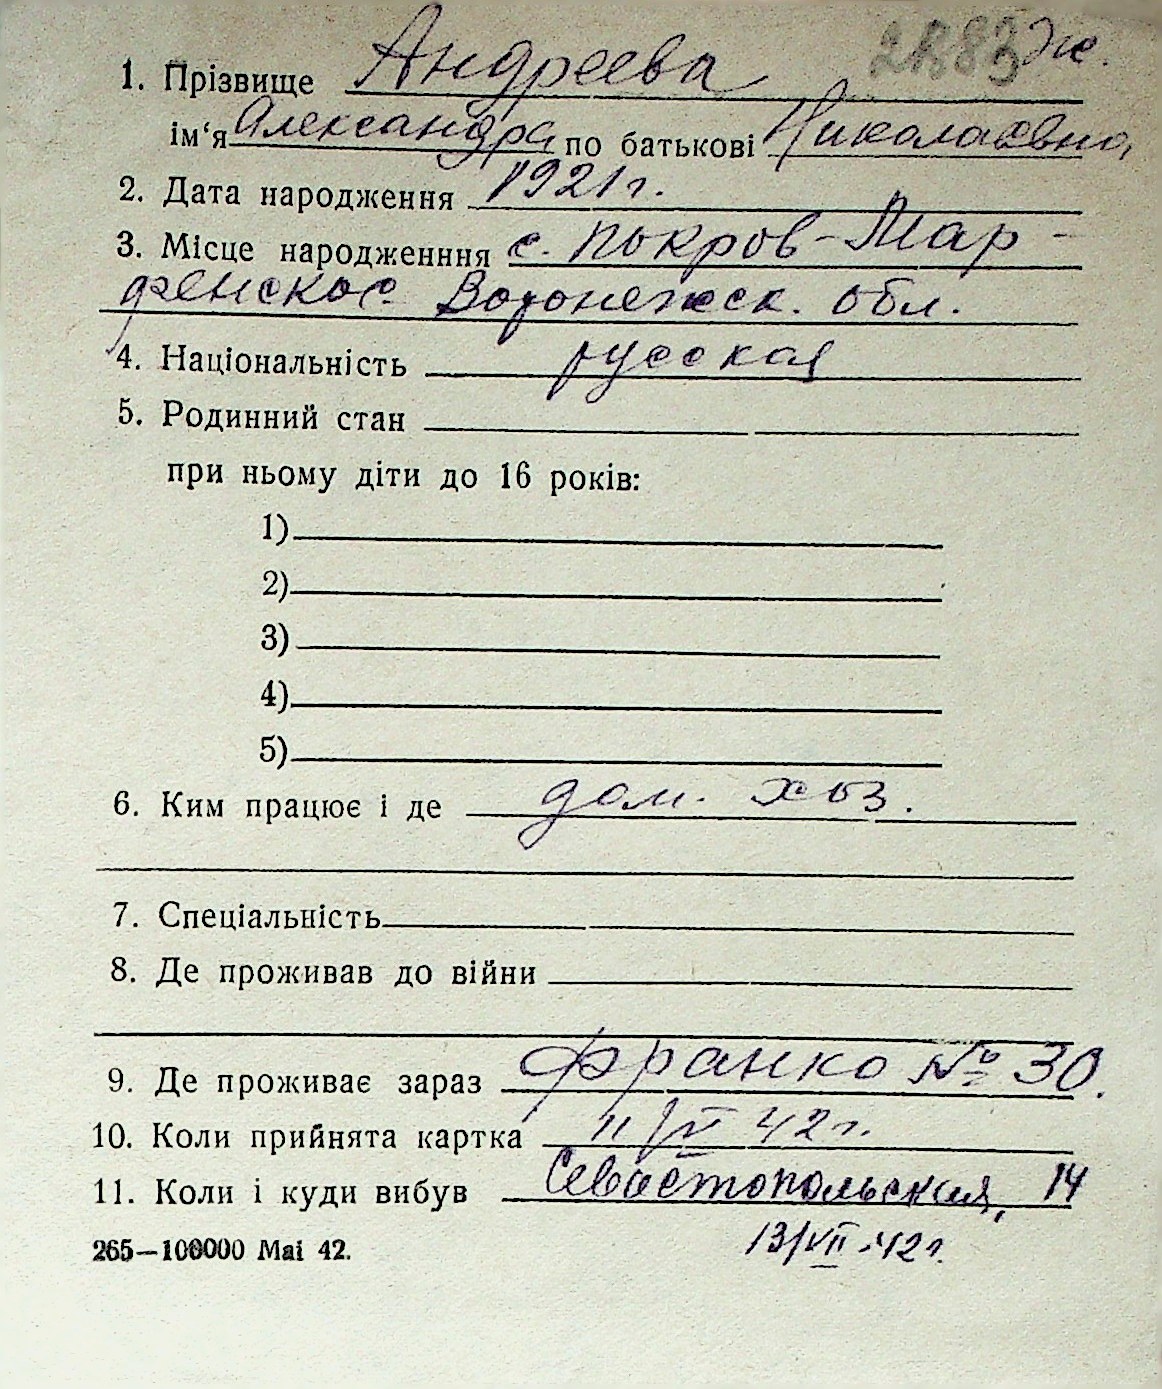 2883 Эк.
1. Прізвище Андреева
ім‘я Александра по батькові Николаевна
2. Дата народження 1921 г.
3. Місце народженння с. Покров-Мар-
фенское Воронежск. обл.
4. Національність русская
5. Родинний стан
при ньому діти до 16 років:
1)
2)
3)
4)
5)
6. Ким працює і де дом. хоз.
7. Спеціальність
8. Де проживав до війни
9. Де проживає зараз Франко № 30.
10. Коли прийнята картка 11/VI 42 г.
11. Коли і куди вибув Севастопольская, 14
265—100000 Mai 42. 13/VII.42 г.